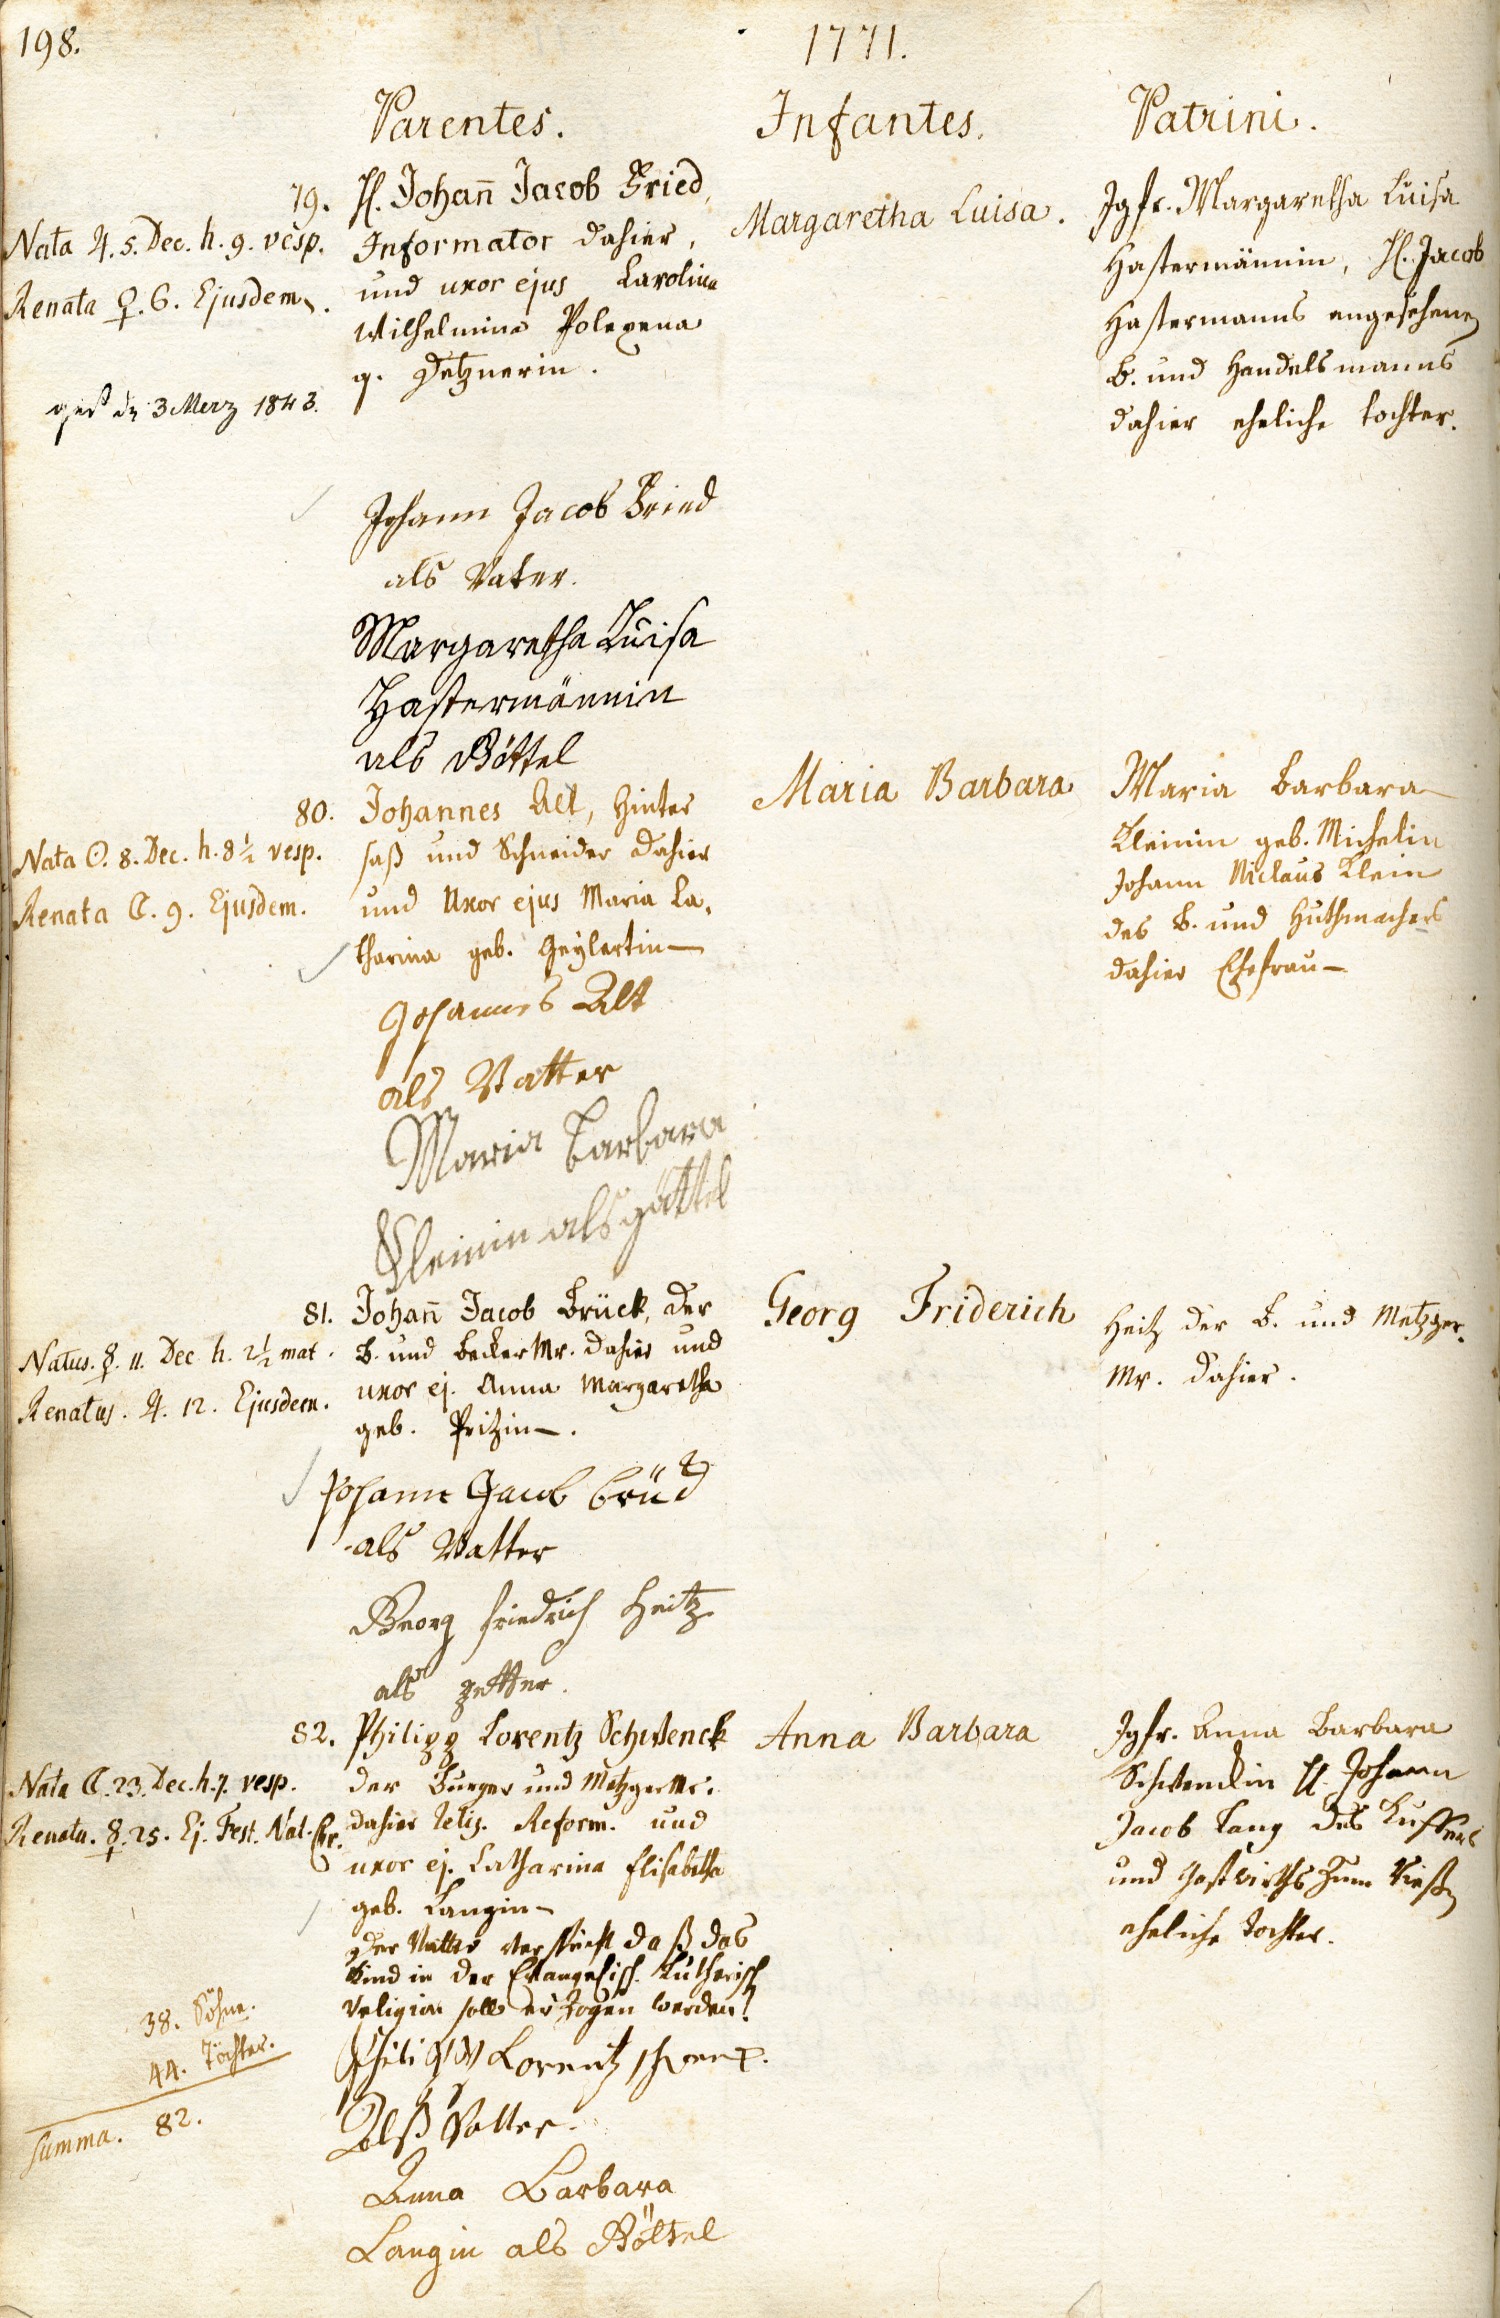 198.
1771.
Parentes.
Infantes.
Patrini.
79.
Nata ♃. 5. Dec. h. 9. vesp.
Renata ♀. 6. Ejusdem.
gest. dn 3 Merz 1843.
H. Johan̄ Jacob Fried,
Informator dahier,
und uxor ejus Carolina
Wilhelmina Polexena
g. Detznerin.
Margaretha Luisa.
Jgfr. Margaretha Luisa
Hastermännin, H. Jacob
Hastermanns angesehenen
B. und Handelsmanns
dahier eheliche tochter.
Johann Jacob Fried
als Vater.
Margaretha Luisa
Hastermännin
als Göttel
80.
Nata ☉. 8. Dec. h. 8½ vesp.
Renata ☾. 9. Ejusdem.
Johannes Alt, Hinter
saß und Schneider dahier
und Uxor ejus Maria Ca,
tharina geb. Geylertin
Maria Barbara
Maria Barbara
Kleinin geb. Michelin
Johann Niclaus Klein
des B. und Huthmachers
dahier Ehefrau
Johannes Alt
als Vatter
Maria Barbara
Kleinin als göttel
81.
Natus. ☿. 11. Dec. h. 2½ mat.
Renatus. ♃. 12. Ejusdem.
Johan̄ Jacob Brück, der
B. und Becker Mr. dahier und
uxor ej. Anna Margaretha
geb. Pritzin.
Georg Friderich
Heitz der B. und Metzger,
Mr. dahier.
Johann Jacob Brück
als Vatter
Georg friedrich Heitz
als getter.
82.
Nata ☾. 23. Dec. h. 7. vesp.
Renata. ☿. 25. Ej. Fest. Nat. Chr.
Philipp Lorentz Schwenck
der Burger und Metzger Mr.
dahier Relig. Reform. und
uxor ej. Catharina Elisabetha
geb. Langin
Der Vatter verspricht daß das
Kind in der Evangelisch. Lutherisch
religion solle erzogen werden!
Anna Barbara
Jgfr. Anna Barbara
Schwenckin H. Johann
Jacob Lang des Kuffers
und Gastwirths zum
eheliche Tochter.
Philipp Lorentz schwenck.
Alß Vatter.
Anna Barbara
Langin als Göttel
38. Söhne.
44. Töchter.
Summa. 82.